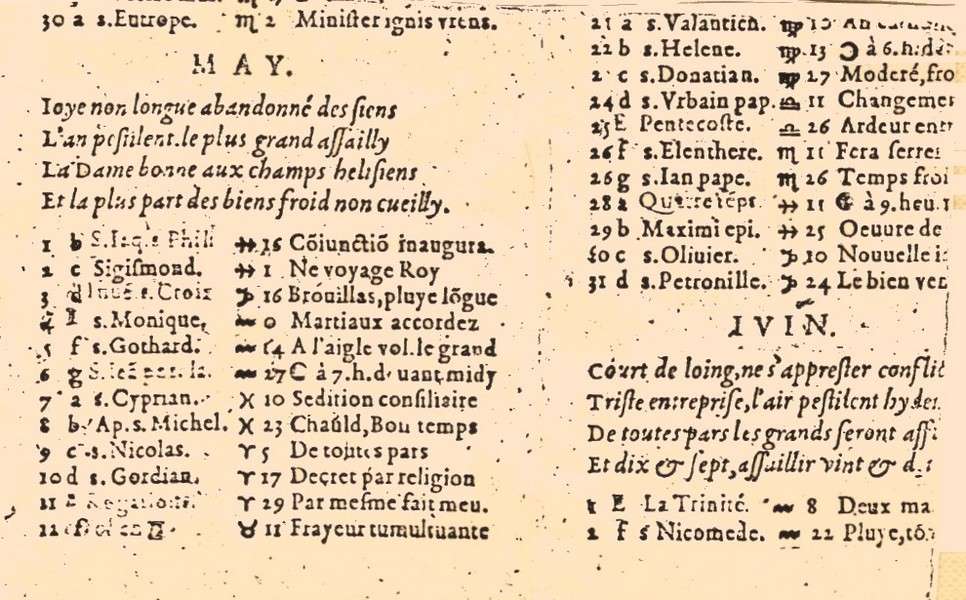 30 a s.Eutrope. ♏ 2 Miniſter ignis vrens.
M A Y.
Ioye non longue abandonné des ſiens
L'an peſtilent.le plus grand aſſailly
La Dame bonne aux champs heliſiens
Et la plus part des biens froid non cueilly.
1 b S.Iaq. Phili ♐ 16 Cõiunctiõ inaugura.
2 c Sigiſmond. ♐ 1 Ne voyage Roy
3 d s. Croix ♑ 16 Brouillas,pluye lõgue
4 s.Monique, ♒ 0 Martiaux accordez
5 f s.Gothard. ♒ 14 A l'aigle vol.le grand
6 g ♒ 27 ☾ à 7.h.d uant midy
7 a s.Cyprian. ♓ 10 Sedition conſiliaire
8 b Ap.s.Michel. ♓ 23 Chauld,Bou temps
9 c s.Nicolas. ♈ 5 De toutes pars
10 d s.Gordian. ♈ 17 Decret par religion
11 Rogations. ♈ 29 Par meſme fait meu.
12 ♉ 11 Frayeur tumultuante
21 a s.Valantien. ♍
22 b s.Helene. ♍ 13 à 6.h.de
2 c s.Donatian. ♍ 27 Moderé,fro
24 d s.Vrbain pap. ♎ 11 Changemen
25 E Pentecoſte. ♎ 26 Ardeur ent
26 f s.Elenthere. ♏ 11 Fera ferre
26 g s.Ian pape. ♏ 26 Temps froi
28 a ♐ 11 à 9.heu.
29 b Maximi epi. ♐ 25 Oeuure de
30 c s.Oliuier. ♑ 10 Nouuelle i
31 d s.Petronille. ♑ 24 Le bien ven
I V I N.
Court de loing,ne s'appreſter conflic
Triſte entrepriſe,l'air peſtilent hyde
De toutes pars les grands ſeront aſſi
Et dix & ſept,aſſaillir vint & d
1 E La Trinité. ♒ 8 Deux ma
2 f s Nicomede. ♒ 22 Pluye,tõ